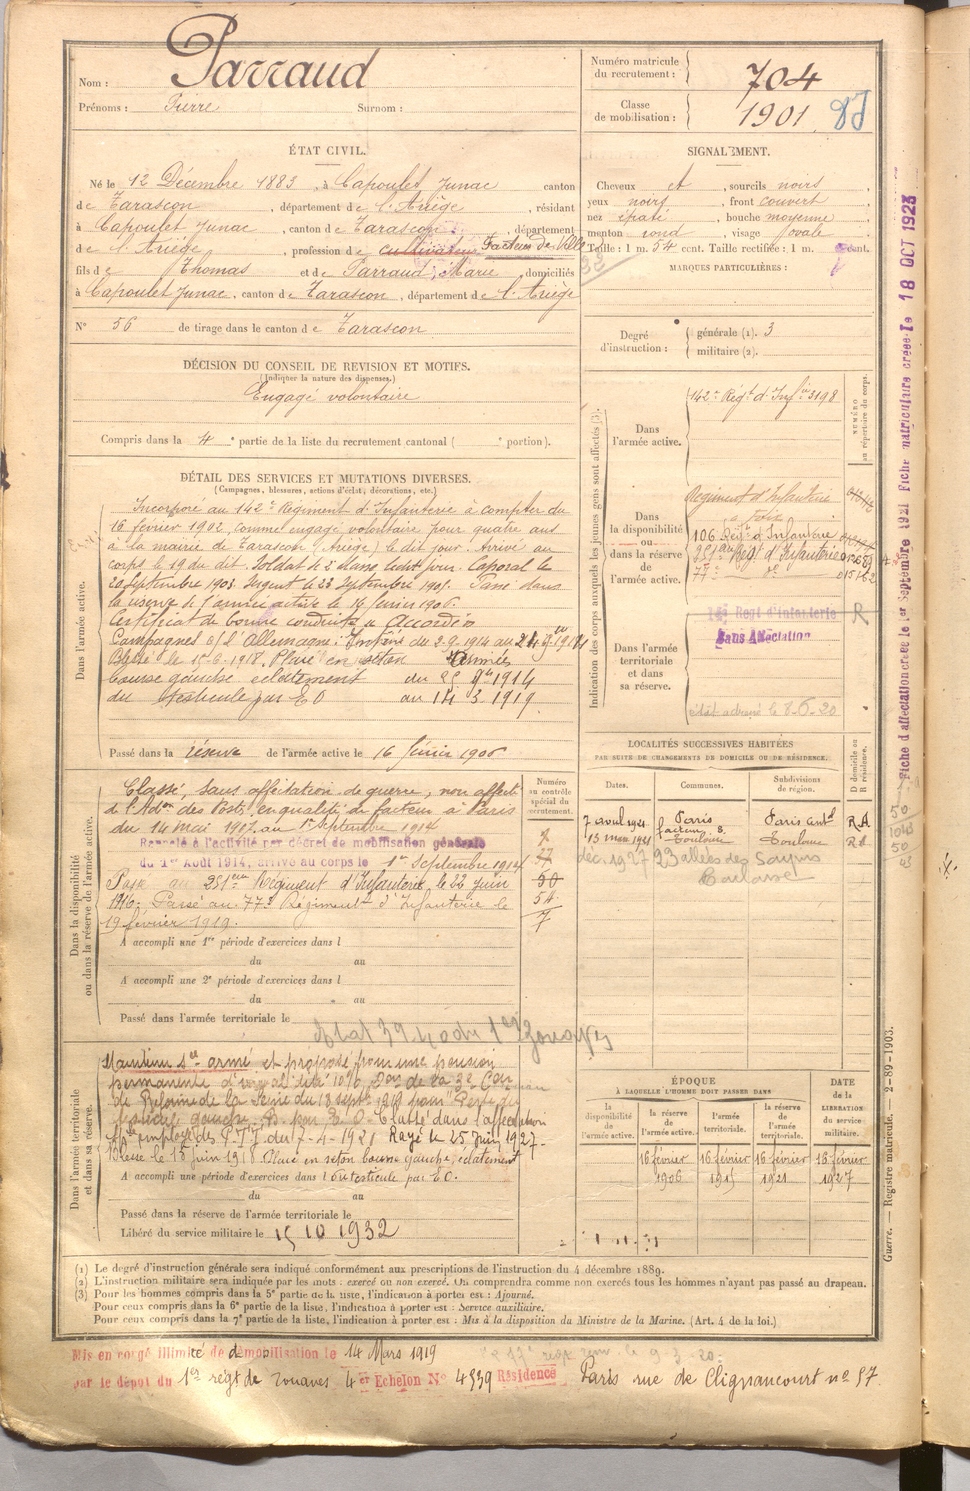 Nom : Parraud
Prénoms : Pierre Surnom :
Numéro matricule du recrutement : 704
Classe de mobilisation : 1901
ÉTAT CIVIL.
Né le 12 Décembre 1883, à Capoulet Junac canton
de Tarascon, département de l'Ariège, résidant
à Capoulet Junac, canton de Tarascon, département
de l'Ariège, profession de cultivateur Facteur de Ville
fils de Thomas et de Parraud, Marie, domiciliés
à Capoulet Junac, canton de Tarascon, département de l'Ariège
N° 56 de tirage dans le canton de Tarascon
SIGNALEMENT.
Cheveux et, sourcils noirs,
yeux noirs, front couvert
nez épaté, bouche moyenne,
menton rond, visage ovale
Taille : 1 m. 54 cent. Taille rectifiée : 1 m. cent.
MARQUES PARTICULIÈRES :
Degré d'instruction : générale (1). 3
militaire (2).
DÉCISION DU CONSEIL DE REVISION ET MOTIFS.
(Indiquer la nature des dispenses.)
Engagé volontaire
Compris dans la 4e partie de la liste du recrutement cantonal ( e portion).
DÉTAIL DES SERVICES ET MUTATIONS DIVERSES.
(Campagnes, blessures, actions d'éclat, décorations, etc.)
Dans l'armée active.
Incorporé au 142e Régiment d'Infanterie à compter du
16 février 1902, comme engagé volontaire pour quatre ans
à la mairie de Tarascon (Ariège) le dit jour. Arrivé au
corps le 19 du dit. Soldat de 2e classe le dit jour. Caporal le
20 Septembre 1903. Sergent le 23 Septembre 1905. Passé dans
la réserve de l'armée active le 16 février 1906.
Certificat de bonne conduite "Accordé"
Campagnes c/ l'Allemagne :
Blessé le 15-6-1918. Plaie en séton Armées
bourse gauche éclatement du 25 9bre 1914
du testicule par EO au 14 3 1919
Passé dans la réserve de l'armée active le 16 février 1906
Indication des corps auxquels les jeunes gens sont affectés (3).
Dans l'armée active.
142e Régt d'Infie 3198
NUMÉRO au répertoire du corps.
Dans la disponibilité ou dans la réserve de l'armée active.
Régiment d'Infanterie
à Foix
106 Régt d'Infanterie
251e Régt d'Infanterie
77e do 015162
Dans l'armée territoriale et dans sa réserve.
Regt d'infanterie R
Sans Affectation
état adressé le 8-6-20
LOCALITÉS SUCCESSIVES HABITÉES
PAR SUITE DE CHANGEMENTS DE DOMICILE OU DE RÉSIDENCE.
Dates. Communes. Subdivisions de région. D domicile ou R résidence.
7 avril 1921 Paris Paris Cent. R.A
13 mai 1921 Toulouse Toulouse Rd
déc. 1927 23 allées des Soupirs
Toulouse
Dans la disponibilité ou dans la réserve de l'armée active.
Numéro au contrôle spécial du recrutement.
Classé, sans affectation, de guerre, non affecté
de l'Adon des Postes en qualité de facteur à Paris
du 14 mai 1907 au 1er septembre 1914
Rappelé à l'activité par décret de mobilisation générale
du 1er Août 1914, arrivé au corps le 1er Septembre 1914
Passé au 251ème Régiment d'Infanterie le 22 juin
1916. Passé au 77e Régiment d'Infanterie le
19 février 1919.
A accompli une 1re période d'exercices dans l
du au
A accompli une 2e période d'exercices dans l
du au
Passé dans l'armée territoriale le
Dans l'armée territoriale et dans sa réserve.
Maintenu sce armé et proposé pour une pension
permanente d'inval. dité 10% par la 3e Com
de Réforme de la Seine du 18 sept. 1919 pour "Perte du
testicule gauche B. par E.O." Classé dans l'affectation
employé des P.T.T. du 7-4-1921 Rayé le 25 Juin 1927.
Blessé le 15 juin 1918 Plaie en séton bourse gauche, éclatement
A accompli une période d'exercices dans l du testicule par EO.
du au
Passé dans la réserve de l'armée territoriale le
Libéré du service militaire le 15 10 1932
ÉPOQUE
À LAQUELLE L'HOMME DOIT PASSER DANS
la disponibilité de l'armée active. la réserve de l'armée active. l'armée territoriale. la réserve de l'armée territoriale. DATE de la LIBÉRATION du service militaire.
16 février 1906 16 février 1915 16 février 1921 16 février 1927
(1) Le degré d'instruction générale sera indiqué conformément aux prescriptions de l'instruction du 4 décembre 1889.
(2) L'instruction militaire sera indiquée par les mots : exercé ou non exercé. On comprendra comme non exercés tous les hommes n'ayant pas passé au drapeau.
(3) Pour les hommes compris dans la 5e partie de la liste, l'indication à porter est : Ajourné.
Pour ceux compris dans la 6e partie de la liste, l'indication à porter est : Service auxiliaire.
Pour ceux compris dans la 7e partie de la liste, l'indication à porter est : Mis à la disposition du Ministre de la Marine. (Art. 4 de la loi.)
Mis en congé illimité de démobilisation le 14 Mars 1919
par le dépot du 1er régt de Zouaves 4er Echelon N° 4539 Résidence Paris rue de Clignancourt no 57.
Fiche d'affectation créée le 1er Septembre 1921 Fiche matriculaire créée le 18 OCT 1923
Guerre. — Registre matricule. — 2-89-1903.